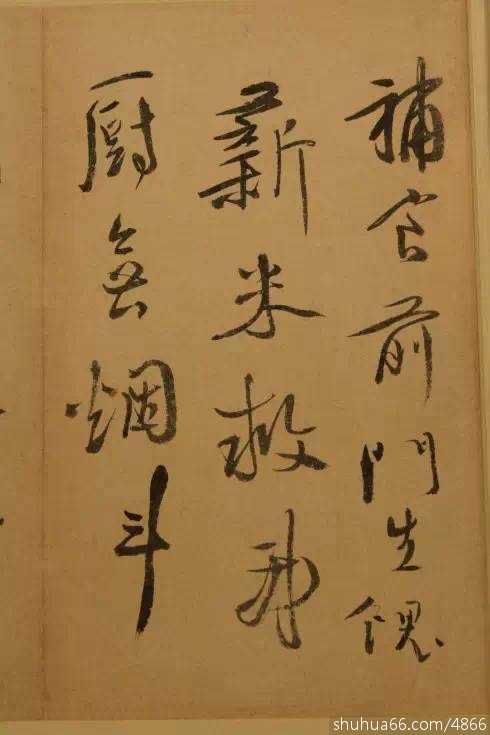 補食前門生餽
薪米救我
厨無烟斗
shuhua66.com/4866